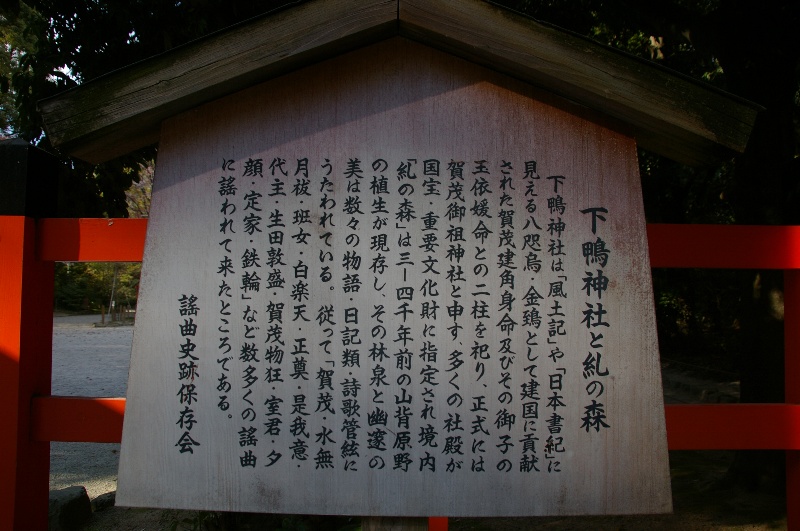 下鴨神社と糺の森
下鴨神社は「風土記」や「日本書紀」に
見える八咫烏・金鵄として建国に貢献
された賀茂建角身命及びその御子の
玉依媛命との二柱を祀り、正式には
賀茂御祖神社と申す、多くの社殿が
国宝・重要文化財に指定され境内
「糺の森」は三ー四千年前の山背原野
の植生が現存し、その林泉と幽邃の
美は数々の物語・日記類・詩歌管絃に
うたわれている。従って「賀茂・水無
月祓・班女・白楽天・正奠・是我意・
代主・生田敦盛・賀茂物狂・室君・夕
顔・定家・鉄輪」など数多くの謡曲
に謡われて来たところである。
謡曲史跡保存会